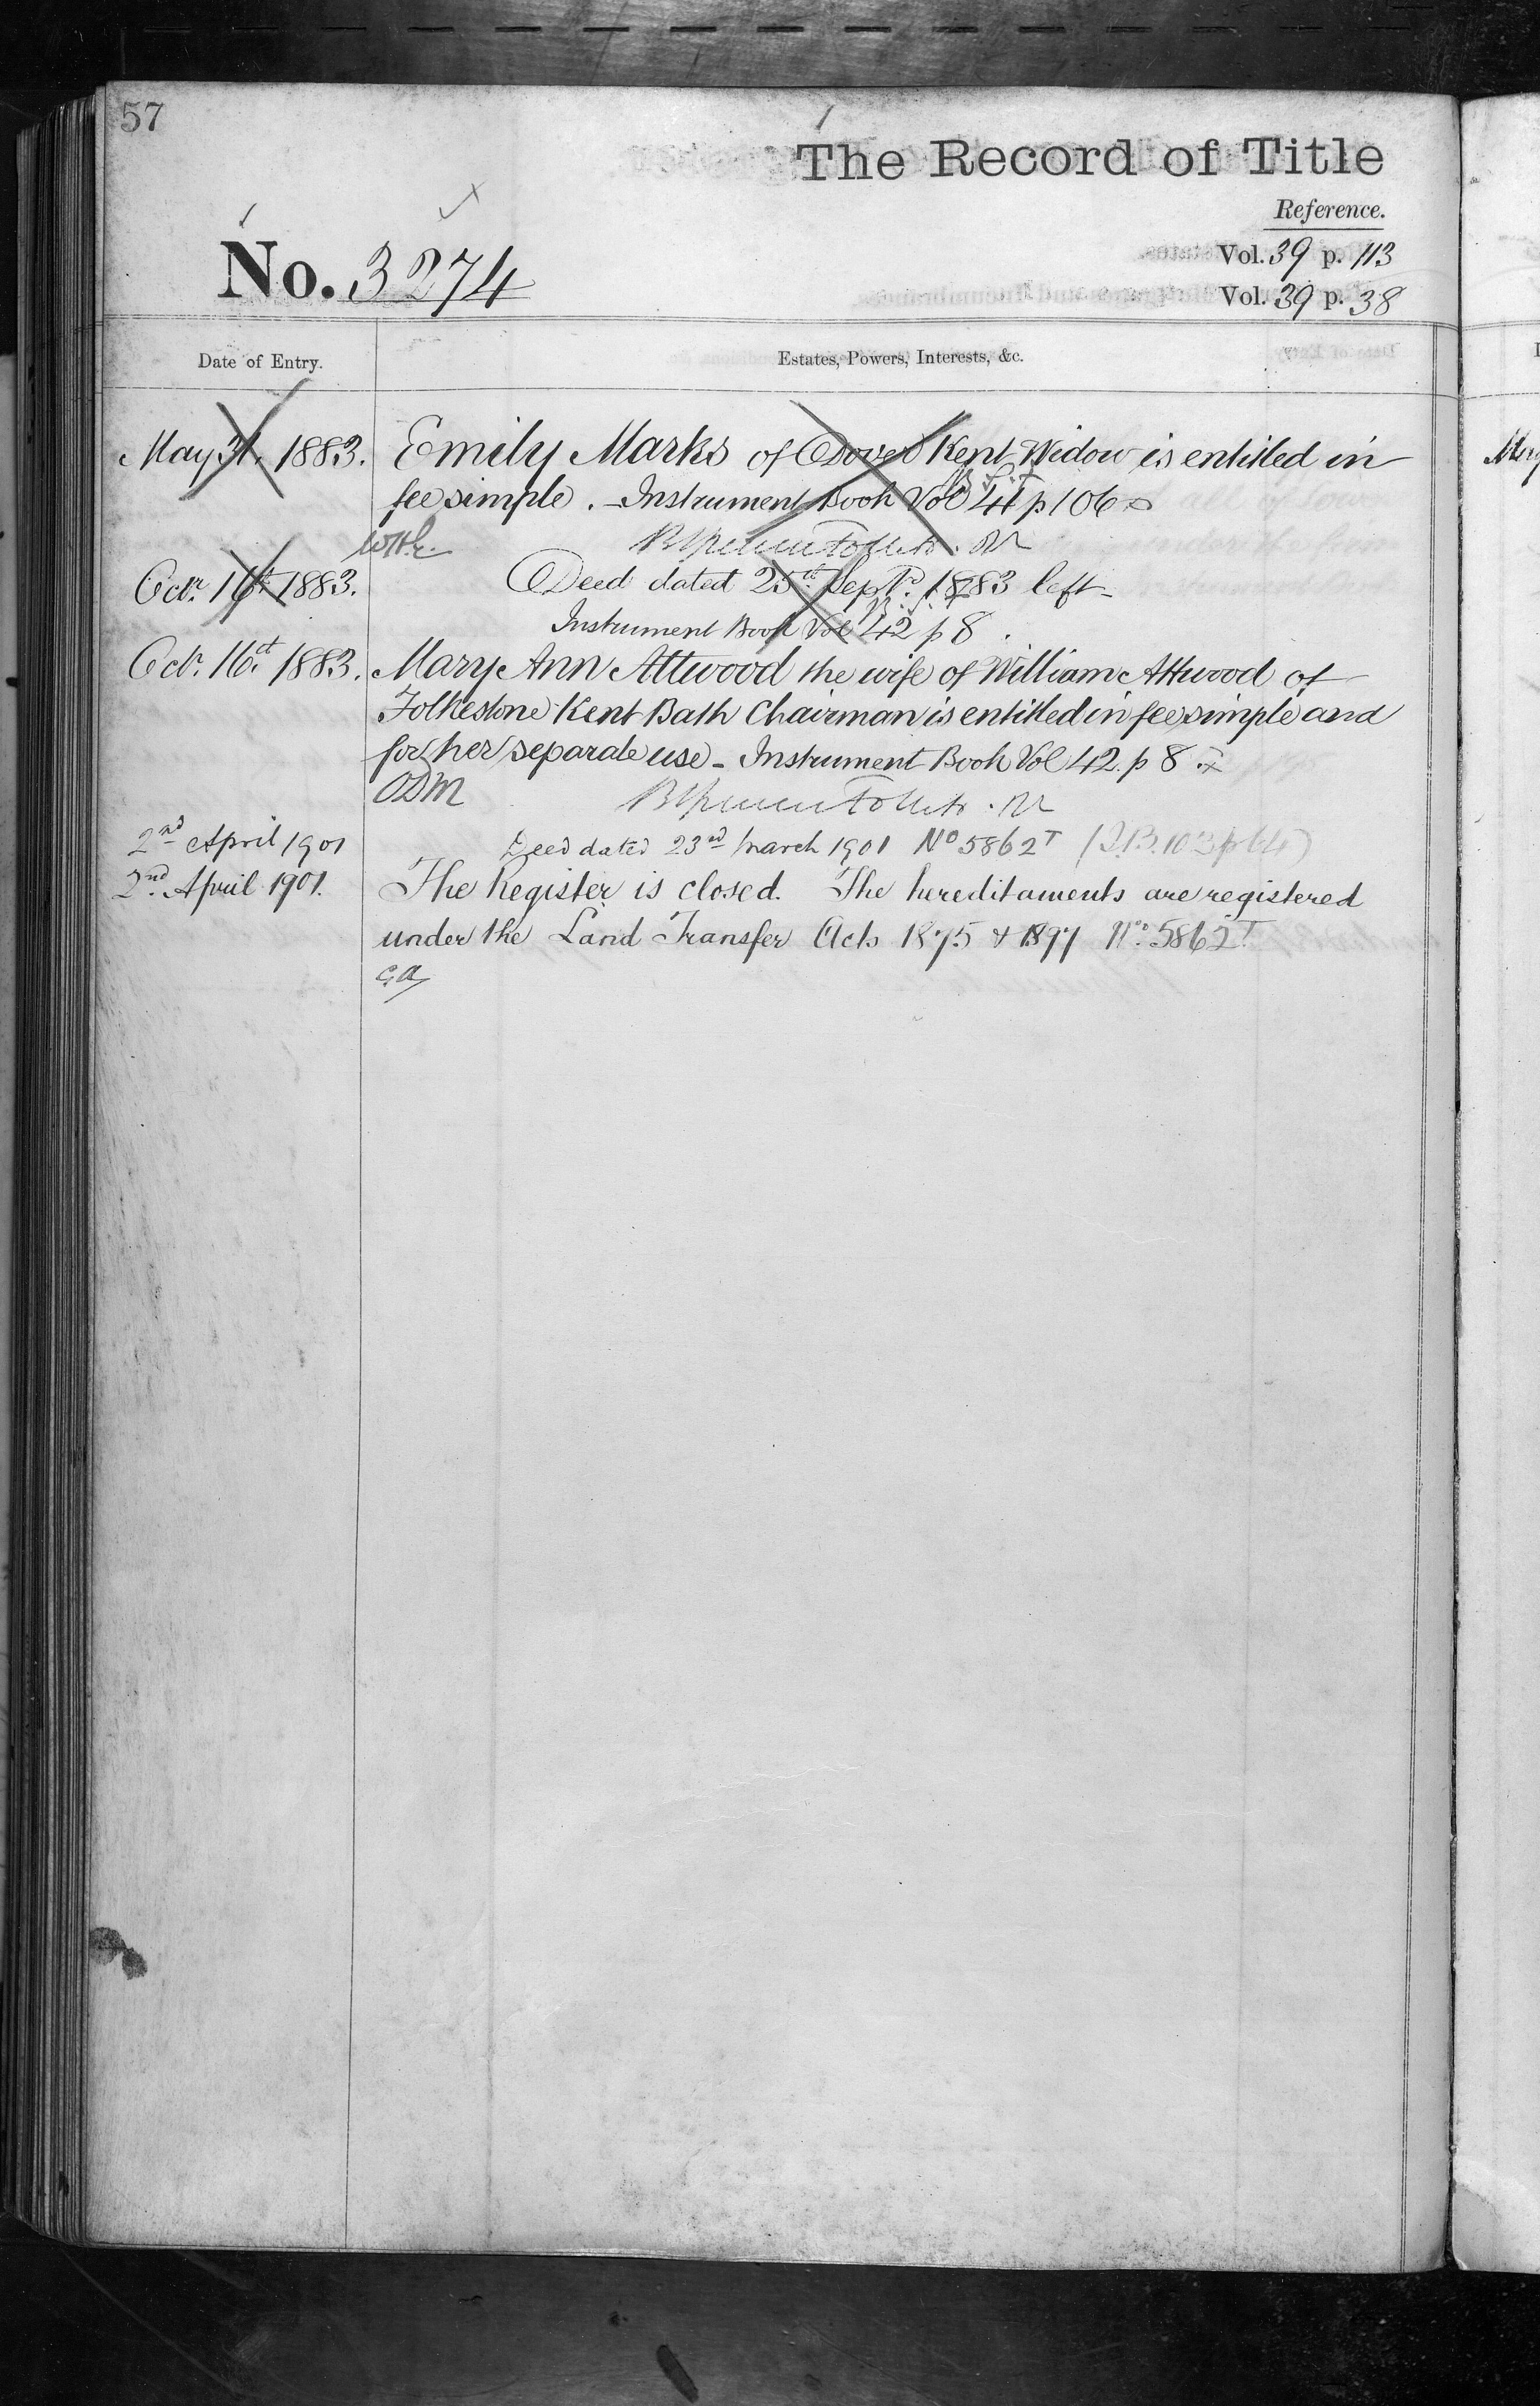 57
The Record of Title
Reference.
No. 3274
Vol. 39 p. 113
Vol. 39 p. 38
Date of Entry.
Estates, Powers, Interests, &c.
May 31. 1883. Emily Marks of Dover Kent Widow is entitled in
fee simple. - Instrument Book Vol 41 p 106
Octr. 16th 1883. Deed dated 25th Sept. 1883 left -
Instrument Book Vol 42 p 8.
Octr. 16th 1883. Mary Ann Attwood the wife of William Attwood of
Folkestone Kent Bath Chairman is entitled in fee simple and
for her separate use - Instrument Book Vol 42. p 8.
ODM
2nd April 1901 Deed dated 23rd March 1901 No 5862T (I.B. 103 p 64)
2nd April 1901. The Register is closed. The hereditaments are registered
under the Land Transfer Acts 1875 & 1897 No. 5862T